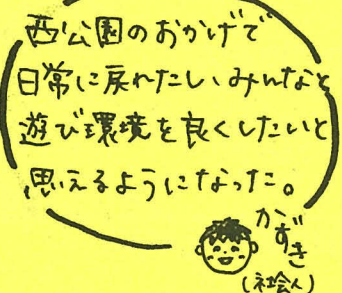 西公園のおかげで
日常に戻れたし、みんなと
遊び環境を良くしたいと
思えるようになった。
かずき
(社会人)